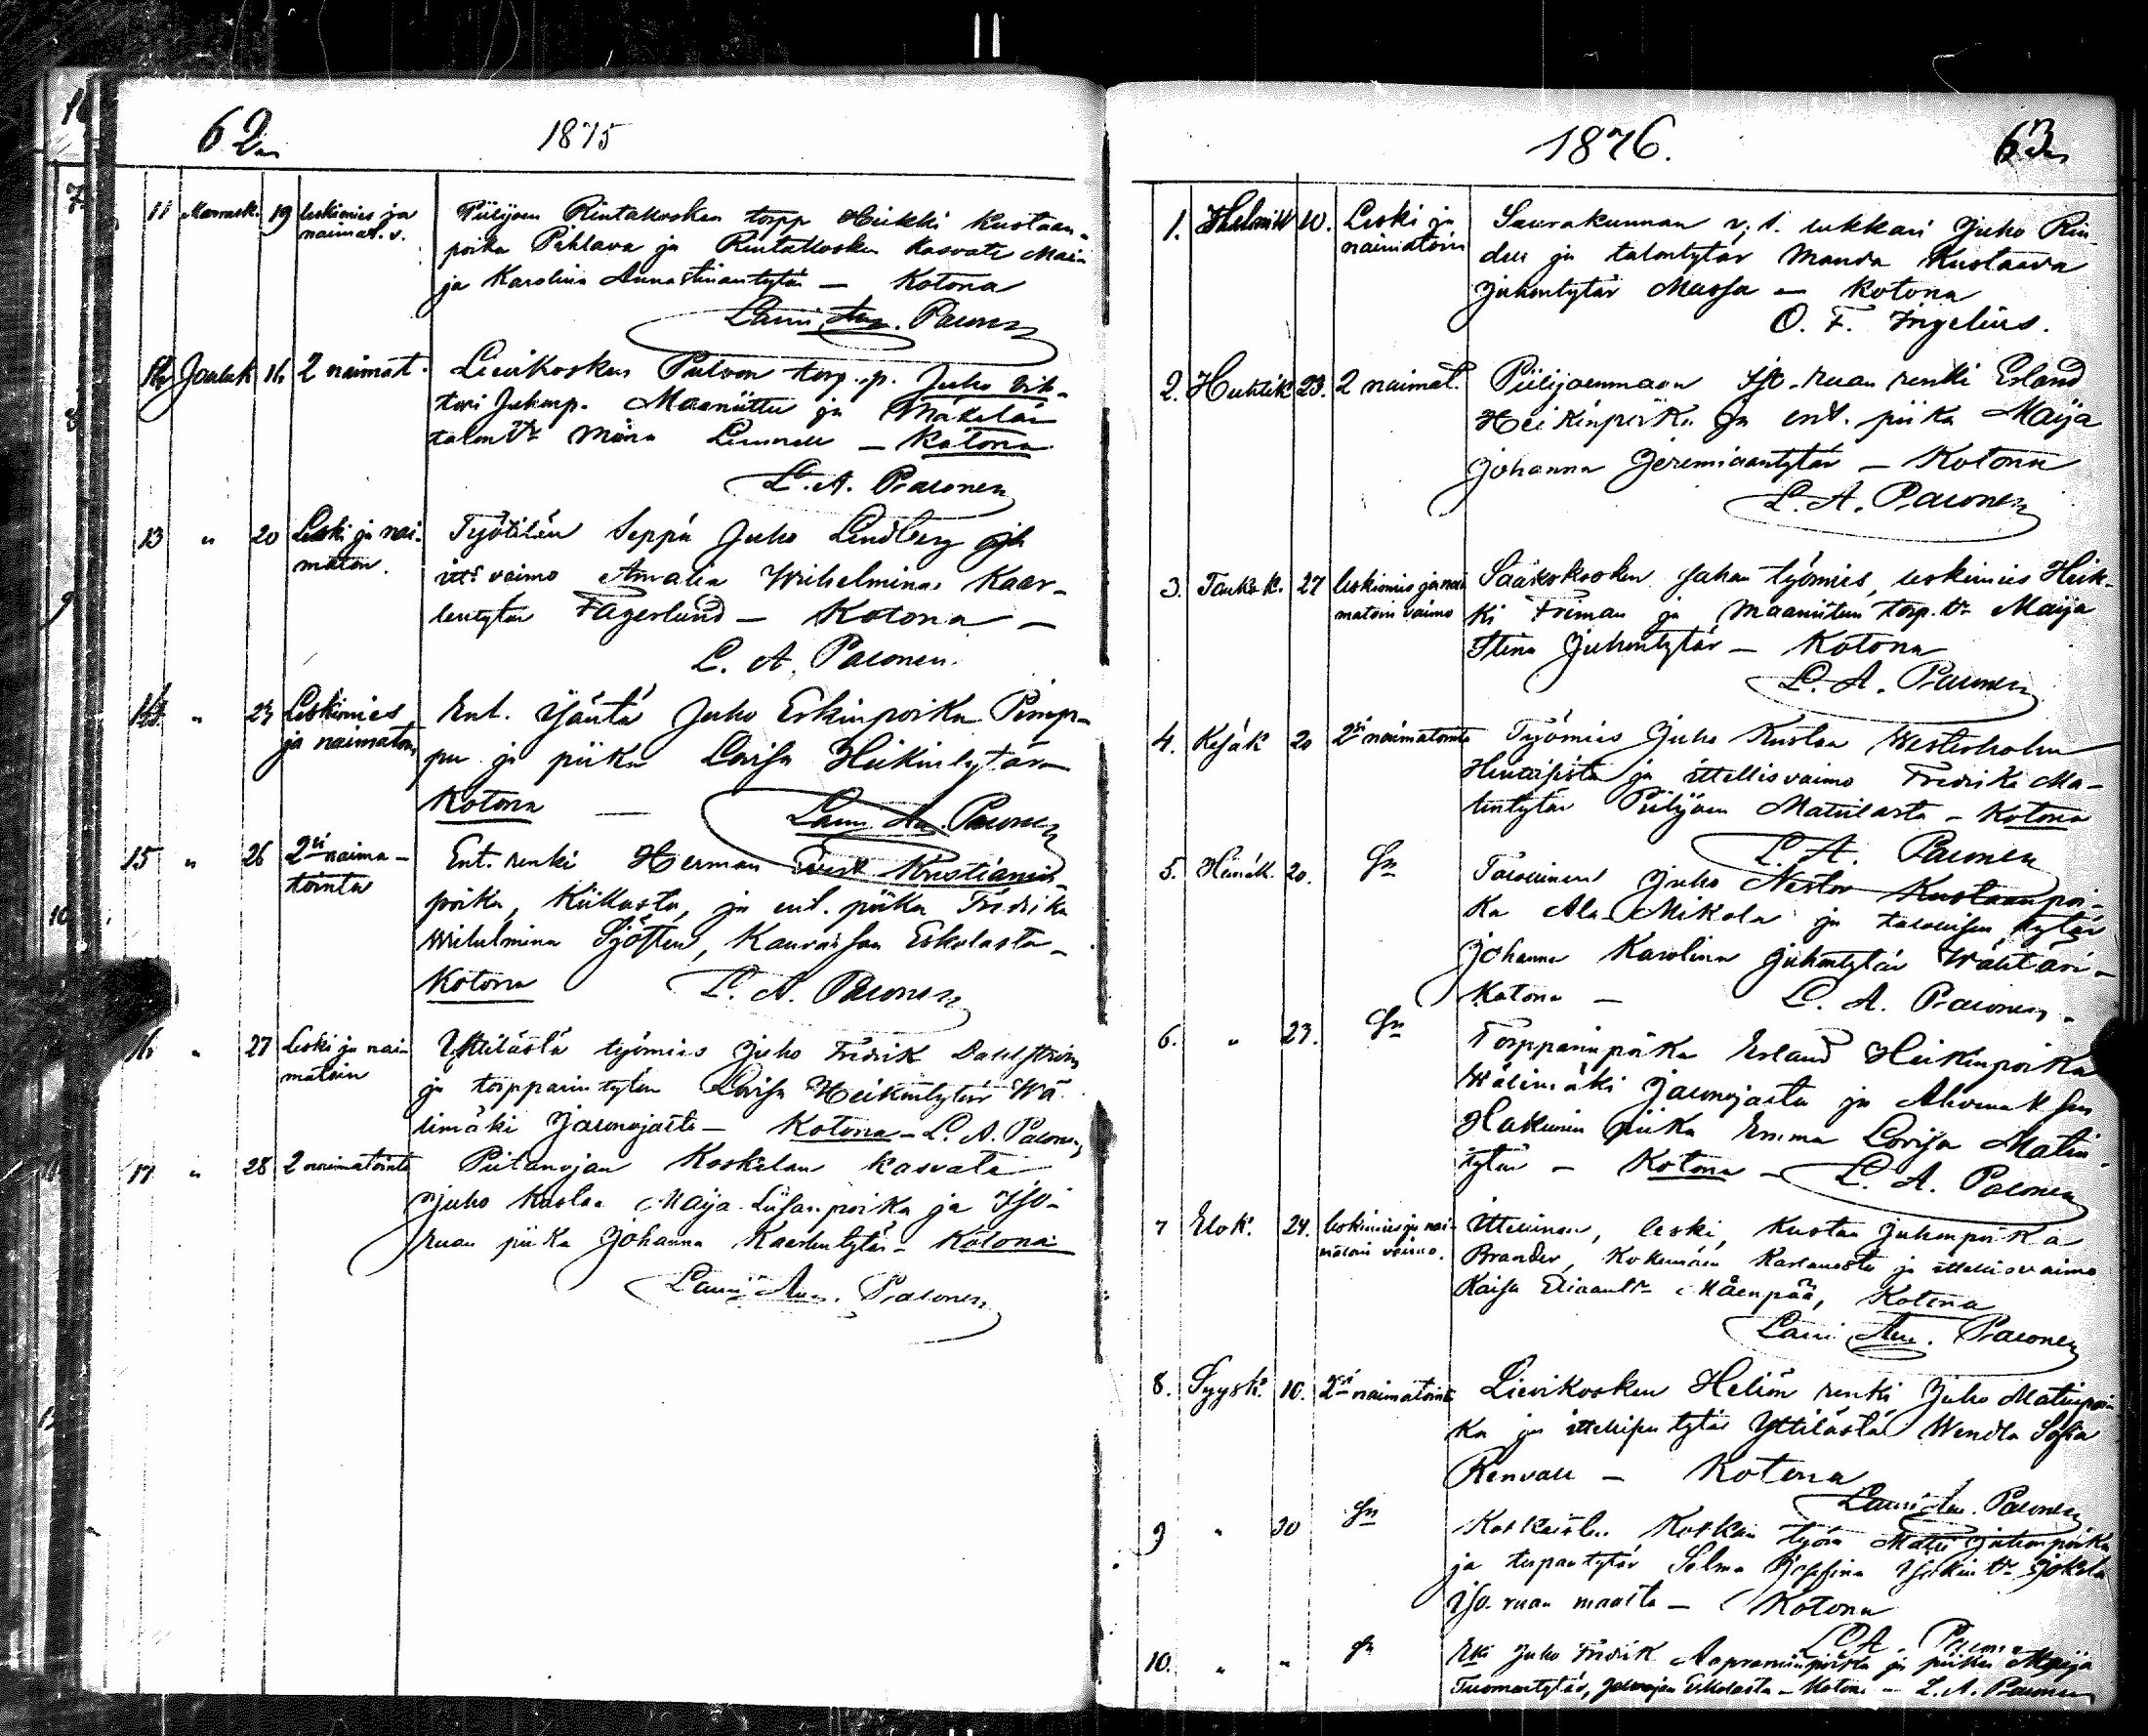 62
1875
11 Marrask. 19 leskimies ja naimat. v.
Piilijoen Rintakosken torpp Heikki Kustaan-
poika Pihlava ja Rintakosken kasvatti Maria
ja Karolina Annastiinantytär — Kotona
Lauri Aug. Paeonen
Jouluk 16 2 naimat.
Lievikosken torp. p. Juho Vih-
tori Juhonp. Maaniittu ja Mäkelän
talon tr Miina — Kotona
L. A. Paeonen
13 " 20 Leski ja nai-
maton.
Työtilän Seppä Juho Lindberg ja
itts vaimo Amalia Wilhelmina Kaar-
lentytär Fagerlund — Kotona —
L. A. Paeonen.
14 " 23 Leskimies
ja naimaton
Ent. Isäntä Juho Erkinpoika Pimp-
pu ja piika Lovisa Heikintytär
Kotona — Lauri Au. Paeonen
15 " 26 2si naima-
tointa
Ent. renki Herman Kristianin-
poika, Kiikasta, ja ent. piika Fredrika
Wilhelmina Sjösten, Kauvatsan Eskolasta —
Kotona L. A. Paeonen
16 " 27 Leski ja nai-
matoin
Yttilästä työmies Juho Fredrik Dahlström
ja torpparin tytär Lovisa Heikintytär Wä-
limäki Jaconojasta — Kotona — L. A. Paeonen
17 " 28 2 naimatointa
Piitanojan Koskelan kasvatti
Juho Kustaa Maija Liisanpoika ja Iso-
ruan piika Johanna Kaarlentytär — Kotona
Lauri Au. Paeonen
1876. 63
1. Helmik 10. Leski ja
naimatoin
Seurakunnan v. t. lukkari Juho Rin-
dell ja talontytär Manda Kustaava
Juhontytär Massa — Kotona
O. F. Ingelius.
2. Huhtik 23. 2 naimat.
Piilijoenmaan Iso-ruan renki Erland
Heikinpoika ja ent. piika Maija
Johanna Jeremiaantytär — Kotona
L. A. Paeonen
3. Toukok. 27 leskimies ja nai-
matoin vaimo
Sääkskosken sahan työmies, leskimies Heik-
ki Friman ja Maaniitun torp. tr Maija
Stina Juhontytär — Kotona
L. A. Paeonen
4. Kesäk 20 2si naimatointa
Työmies Juho Kustaa Westerholm
ja ittellisvaimo Fredrika Ma-
tintytär Piilijoen Mattilasta — Kotona
L. A. Paeonen
5. Heinäk. 20. Sn
Talollinen Juho Nestor Kustaanpoi-
ka Ala-Mikola ja talollisen tytär
Johanna Karolina Juhontytär Wähtäri —
Kotona — L. A. Paeonen.
6. " 23. Sn
Torpparinpoika Erland Heikinpoika
Wälimäki Jaconojasta ja
piika Emma Lovisa Matin-
tytär — Kotona — L. A. Paeonen
7 Elok. 24. leskimies ja nai-
matoin vaimo.
Ittellinen, leski, Kustaa Juhonpoika
Brander, Kokemäen ja ittellisvaimo
Kaisa Eliaan tr Mäenpää, Kotona
Lauri Au. Paeonen
8. Syysk. 10. 2si naimatointa
Lievikosken Heliön renki Juho Matinpoi-
ka ja ittellisen tytär Yttilästä Wendla Sofia
Renvall — Kotona
Lauri Au. Paeonen
9 " 30 Sn
Matti Juhonpoika
ja torpantytär Selma Josefina tr Jokela
Iso-ruan maasta — Kotona
L. A. Paeonen
10. " " Sn
Rki Juho Fredrik Aapraminpoika ja piika Maija
Tuomantytär, Jaconojan Eskolasta — Kotona — L. A. Paeonen